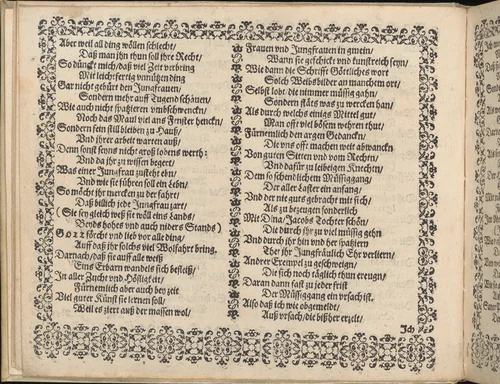 Aber weil all ding wöllen schlecht/
Daß man jhn thun soll jhre Recht/
So düncket mich/ daß viel Zeit verbring
Mit leichtfertig unnützen ding
Gar nicht gebürt den Jungfrauen/
Sondern mehr auff Tugend schauen/
Wie auch nicht spatzieren umbschwencken/
Noch das Maul viel ans Fenster hencken/
Sondern fein still bleiben zu Hauß/
Und jhrer arbeit warten auß/
Denn sonst seyns nicht groß lobens werth:
Und da jhr zu wissen begert/
Was einer Jungfrau zusteht ebn/
Und wie sie führen soll ein Lebn/
So möcht jhr mercken zu der fahrt/
Daß billich jede Jungfrau zart/
(Sie sey gleich weß sie wöll eins Lands/
Beyds hohes und auch niders Stands)
Gott förcht und lieb vor alle ding/
Auff daß jhr solchs viel Wolfahrt bring.
Darnach/ daß sie auff alle weiß
Eins Erbarn wandels sich befleiß/
In aller Zucht und Höfligkeit/
Fürnemlich aber auch bey zeit
Viel guter Künst sie lernen soll/
Weil es ziert auß der massen wol/
Frauen und Jungfrauen in gmein/
Wann sie geschickt und kunstreich seyn/
Wie dann die Schrifft Göttliches wort
Solch Weibsbilder an manchem ort/
Selbst lobt/ die nimmer müssig gahn/
Sondern stäts was zu wercken han/
Als durch welches einigs Mittel gut/
Man offt viel bösem wehren thut/
Fürnemlich den argen Gedanckn/
Die uns offt machen weit abwancken
Von guten Sitten und vom Rechten/
Und dafür zu leibeigen Knechten
Dem so schendlichem Müssiggang/
Der aller Laster ein anfang/
Und der nie guts gebracht mit sich/
Als zu bezeugen sonderlich
Mit Dina/ Jacobs Tochter schön/
Die durch jhr zu viel müssig gehn
Und durch jhr hin und her spatziern
Thet jhr Jungfräulich Ehr verliern/
Andrer Exempel zu geschweign/
Die sich noch täglich thun ereugn/
Daran dann fast zu jeder frist
Der Müssiggang ein ursach ist.
Also daß ich wie obgemeldt/
Auß ursach/ die bißher erzelt/
Ich